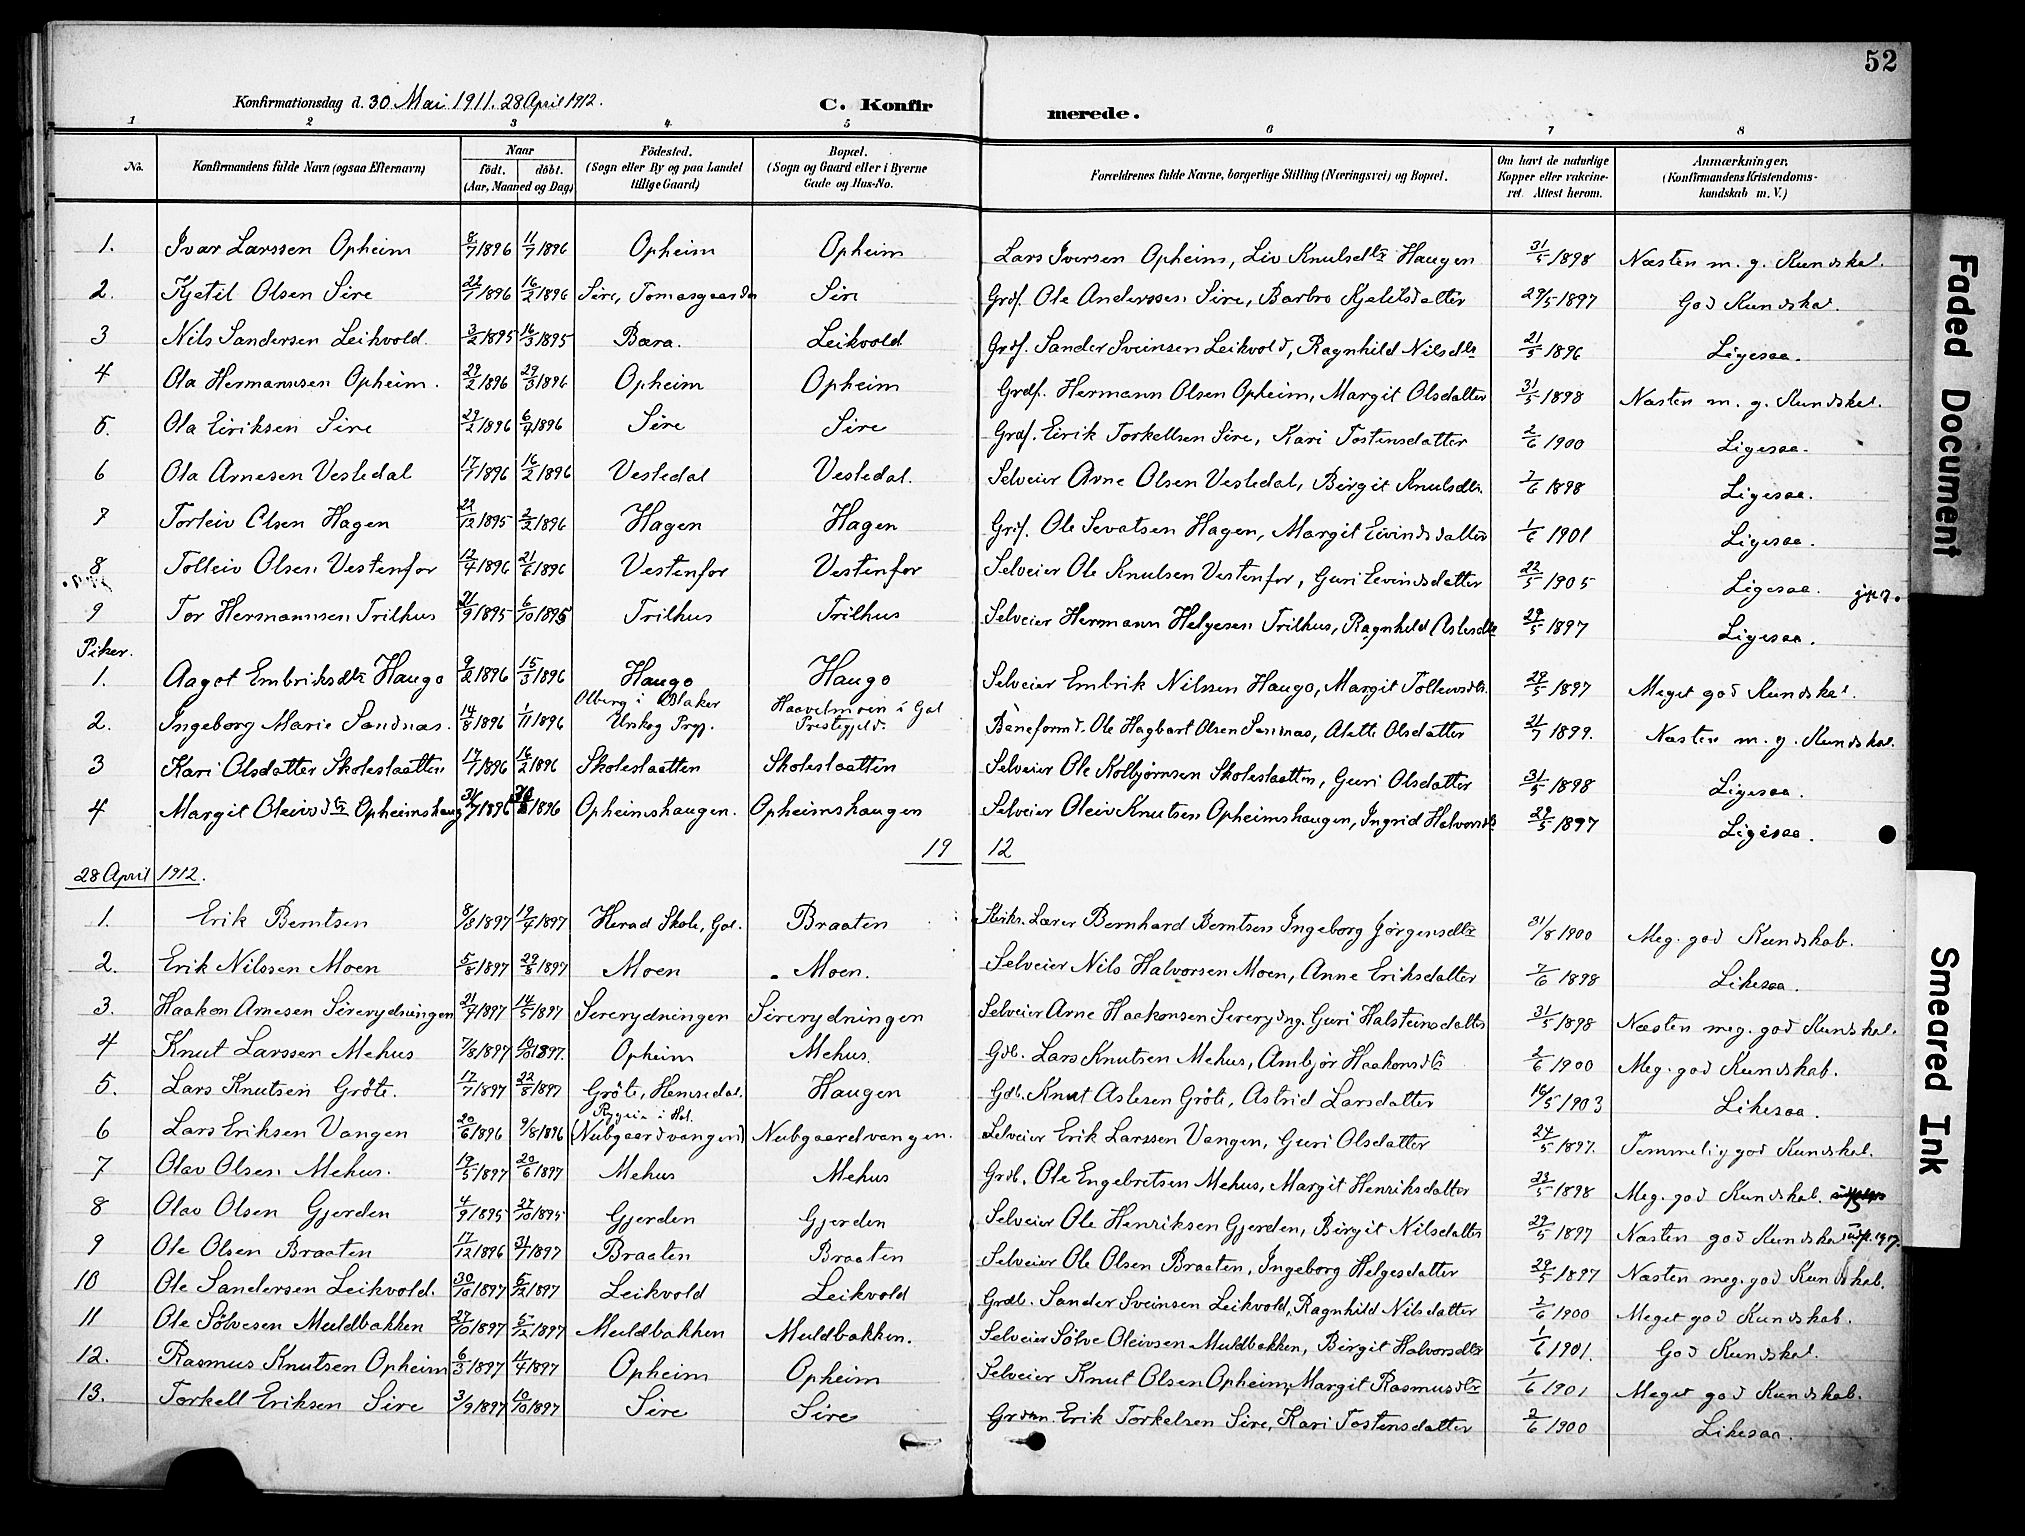 52
Konfirmationsdag d. 30 Mai 1911. 28 April 1912.
C. Konfirmerede.
1 2 3 4 5 6 7 8
No. Konfirmandens fulde Navn (ogsaa Efternavn) Naar født. døbt. (Aar, Maaned og Dag) Födested. (Sogn eller By og paa Landet tillige Gaard) Bopæl. (Sogn og Gaard eller i Byerne Gade og Hus-No. Forældrenes fulde Navne, borgerlige Stilling (Næringsvei) og Bopæl. Om havt de naturlige Kopper eller vakcineret. Attest herom. Anmærkninger. (Konfirmandens Kristendomskundskab m. V.)
1. Ivar Larssen Opheim 8/7 1896 11/7 1896 Opheim Opheim Lars Iversen Opheim, Liv Knutsdtr Haugen 31/5 1898 Næsten m. g. Kundskab.
2. Kjetil Olsen Sire 22/1 1896 16/2 1896 Sire, Tomasgaarden Sire Grdf. Ole Anderssen Sire, Barbro Kjetilsdatter 29/5 1897 God Kundskab.
3 Nils Sandersen Leikvold. 3/2 1895 16/3 1895 Bæra. Leikvold Grdf. Sander Sveinsen Leikvold, Ragnhild Nilsdtr 21/5 1896 Ligesaa.
4 Ola Hermannsen Opheim. 29/2 1896 29/3 1896 Opheim Opheim Grdf. Hermann Olsen Opheim, Margit Olsdatter 31/5 1898 Næsten m. g. Kundskab.
5. Ola Eiriksen Sire 29/2 1896 6/4 1896 Sire Sire Grdf. Eirik Torkellsen Sire, Kari Tostensdatter 2/6 1900 Ligesaa.
6 Ola Arnesen Vestedal 17/1 1896 16/2 1896 Vestedal Vestedal. Selveier Arne Olsen Vestedal, Birgit Knutsdtr. 7/6 1898 Ligesaa.
7 Torleiv Olsen Hagen 22/12 1895 2/2 1896 Hagen Hagen Grdf. Ole Sevatsen Hagen, Margit Eivindsdatter 1/6 1901 Ligesaa.
8 Tolleiv Olsen Vestenfor 12/4 1896 21/6 1896 Vestenfor Vestenfor Selveier Ole Knutsen Vestenfor, Guri Eivindsdatter 22/5 1905 Ligesaa.
9 Tor Hermannsen Trilhus 21/9 1895 6/10 1895 Trilhus Trilhus Selveier Hermann Helgesen Trilhus, Ragnhild Aslesdtr 29/5 1897 Ligesaa.
Piker.
1. Aagot Embriksdtr Haugo 9/2 1896 15/3 1896 Haugo Haugo Selveier Embrik Nilssen Haugo, Margit Tolleivsdtr. 29/5 1897 Meget god Kundskab.
2. Ingeborg Marie Sandnæs. 14/8 1896 1/11 1896 Alberg i Blaker Urskog Prgj. Haavelmoen i Gol Prestegjeld. Baneformd. Ole Hagbart Olsen Sannæs, Alette Olsdatter 21/7 1899. Næsten m. g. Kundskab.
3 Kari Olsdatter Skoleslaatten 17/1 1896 16/2 1896 Skoleslaatten Skoleslaatten Selveier Ole Kolbjørnsen Skoleslaatten, Guri Olsdatter 31/5 1898 Ligesaa.
4 Margit Oleivsdtr Opheimshaug 1896 1896 Opheimshaugen. Opheimshaugen Selveier Oleiv Knutsen Opheimshaugen, Ingrid Helvorsdtr 29/5 1897 Ligesaa.
19 12
28 April 1912.
1. Erik Berntsen 8/3 1897 19/4 1897 Herad Skole, Gol. Braaten Kirks. Lærer Bernhard Berntsen Ingeborg Jørgensdtr 31/8 1900 Meg. god Kundskab.
2. Erik Nilssen Moen 5/8 1897 29/8 1897 Moen Moen. Selveier Nils Halvorsen Moen, Anne Eriksdatter 7/6 1898 Likesaa.
3. Haakon Arnesen Sirerydningen 21/4 1897 14/5 1897 Sirerydningen Sirerydningen Selveier Arne Haakonsen Sererydng. Guri Halsteinsdatter 31/5 1898 Næsten meg. god Kundskab.
4 Knut Larssen Mehus 7/8 1897 10/10 1897. Opheim Mehus. Gdb. Lars Knutsen Mehus, Ambjør Haakonsdtr 2/6 1900 Meg. god Kundskab.
5. Lars Knutsen Gröte. 17/7 1897 22/8 1897 Gröte, Hemsedal Haugen Gdb. Knut Aslesen Gröte, Astrid Larsdatter 16/5 1903 Likesaa.
6 Lars Eriksen Vangen 20/6 1896 9/8 1896 i Hol. (Nubgaardvangen) Nubgaardvangen. Selveier Erik Larssen Vangen, Guri Olsdatter 24/5 1897. Temmelig god Kundskab.
7 Olav Olsen Mehus. 19/5 1897 20/6 1897 Mehus Mehus Grdb. Ole Engebretsen Mehus, Margit Henriksdatter 23/5 1898 Meg. god Kundskab.
8 Olav Olsen Gjerden 4/9 1895 27/10 1895 Gjerden Gjerden Selveier Ole Henriksen Gjerden, Birgit Nilsdatter 29/5 1897 Næsten god Kundskab
9 Ole Olsen Braaten 17/12 1896 31/1 1897 Braaten Braaten Selveier Ole Olsen Braaten, Ingeborg Helgesdatter 29/5 1897 Næsten meg. god Kundskab.
10 Ole Sandersen Leikvold. 30/10 1897 5/12 1897 Leikvold Leikvold Grdb. Sander Sveinsen Leikvold, Ragnhild Nilsdatter 2/6 1900 Meget god Kundskab.
11 Ole Sölvesen Muldbakken 27/10 1897 5/12 1897 Muldbakken Muldbakken. Selveier Sölve Oleivsen Muldbakken, Birgit Halvorsdtr 1/6 1901. God Kundskab.
12. Rasmus Knutsen Opheim 6/3 1897 11/4 1897 Opheim Opheim Selveier Knut Olsen Opheim, Margit Rasmusdtr 1/6 1901 Meget god Kundskab.
13. Torkell Eriksen Sire 3/9 1897 10/10 1897 Sire Sire Grdmn. Erik Torkelsen Sire, Kari Tostensdatter 2/6 1900 Likesaa.
Faded Document
Smeared Ink